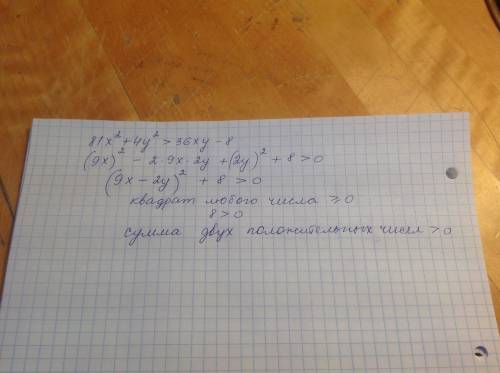 81x² + 4y² > 36xy - 8
(9x)² - 2·9x·2y + (2y)² + 8 > 0
(9x - 2y)² + 8 > 0
квадрат любого числа ⩾ 0
8 > 0
сумма двух положительных чисел > 0